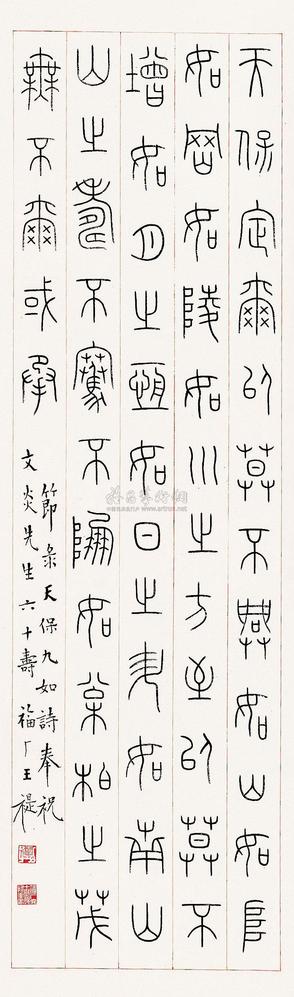 天保定爾以莫不興如山如阜
如岡如陵如川之方至以莫不
增如月之恆如日之升如南山
山之壽不騫不崩如松柏之茂
無不爾或承
節彔天保九如詩奉祝
文炎先生六十壽 福厂王禔